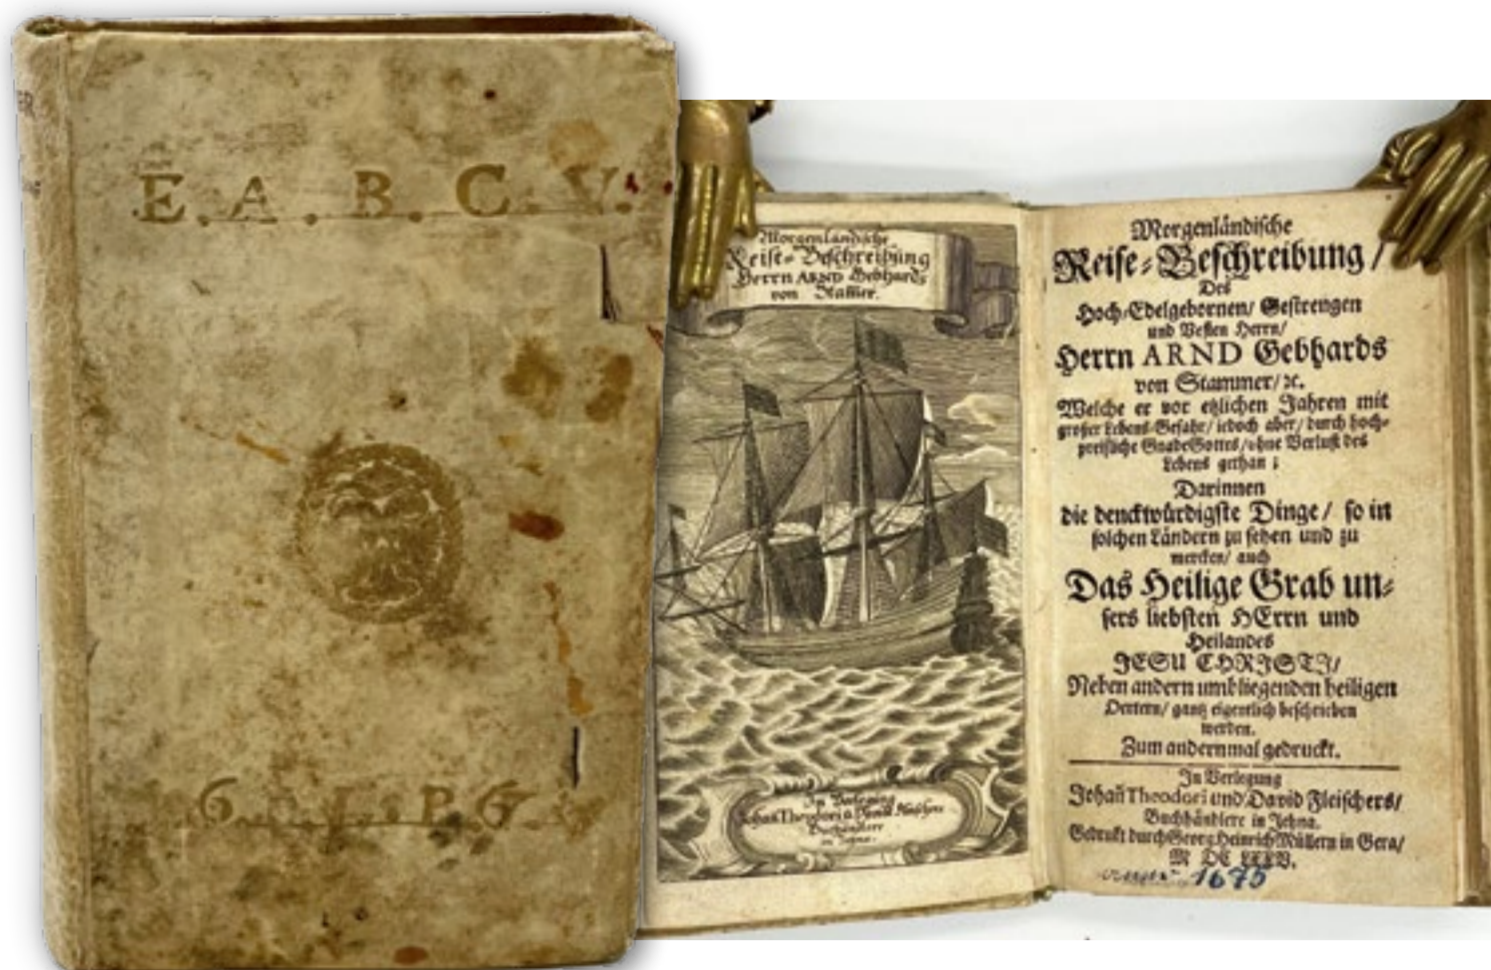 E. A. B. C. V.
Morgenländische
Reise-Beschreibung
Herrn ARND Gebhards
von Stam̃er.
In Verlegung
Johañ Theodori
Buchhändlere
in Jehna.
Morgenländische
Reise-Beschreibung /
Des
Hoch-Edelgebornen/ Gestrengen
und Vesten Herrn/
Herrn ARND Gebhards
von Stammer/ ꝛc.
Welche er vor etzlichen Jahren mit
grosser Lebens-Gefahr/ iedoch aber/ durch hoch-
preißliche Gnade Gottes/ ohne Verlust des
Lebens gethan;
Darinnen
die denckwürdigste Dinge / so in
solchen Ländern zu sehen und zu
mercken/ auch
Das Heilige Grab un-
sers liebsten HErrn und
Heilandes
JESU CHRISTI/
Neben andern umbliegenden heiligen
Oertern/ gantz eigentlich beschrieben
werden.
Zum andernmal gedruckt.
In Verlegung
Johañ Theodori und David Fleischers/
Buchhändlere in Jehna.
Gedruckt durch Georg Heinrich Müllern in Gera/
M DC LXXV.
1675